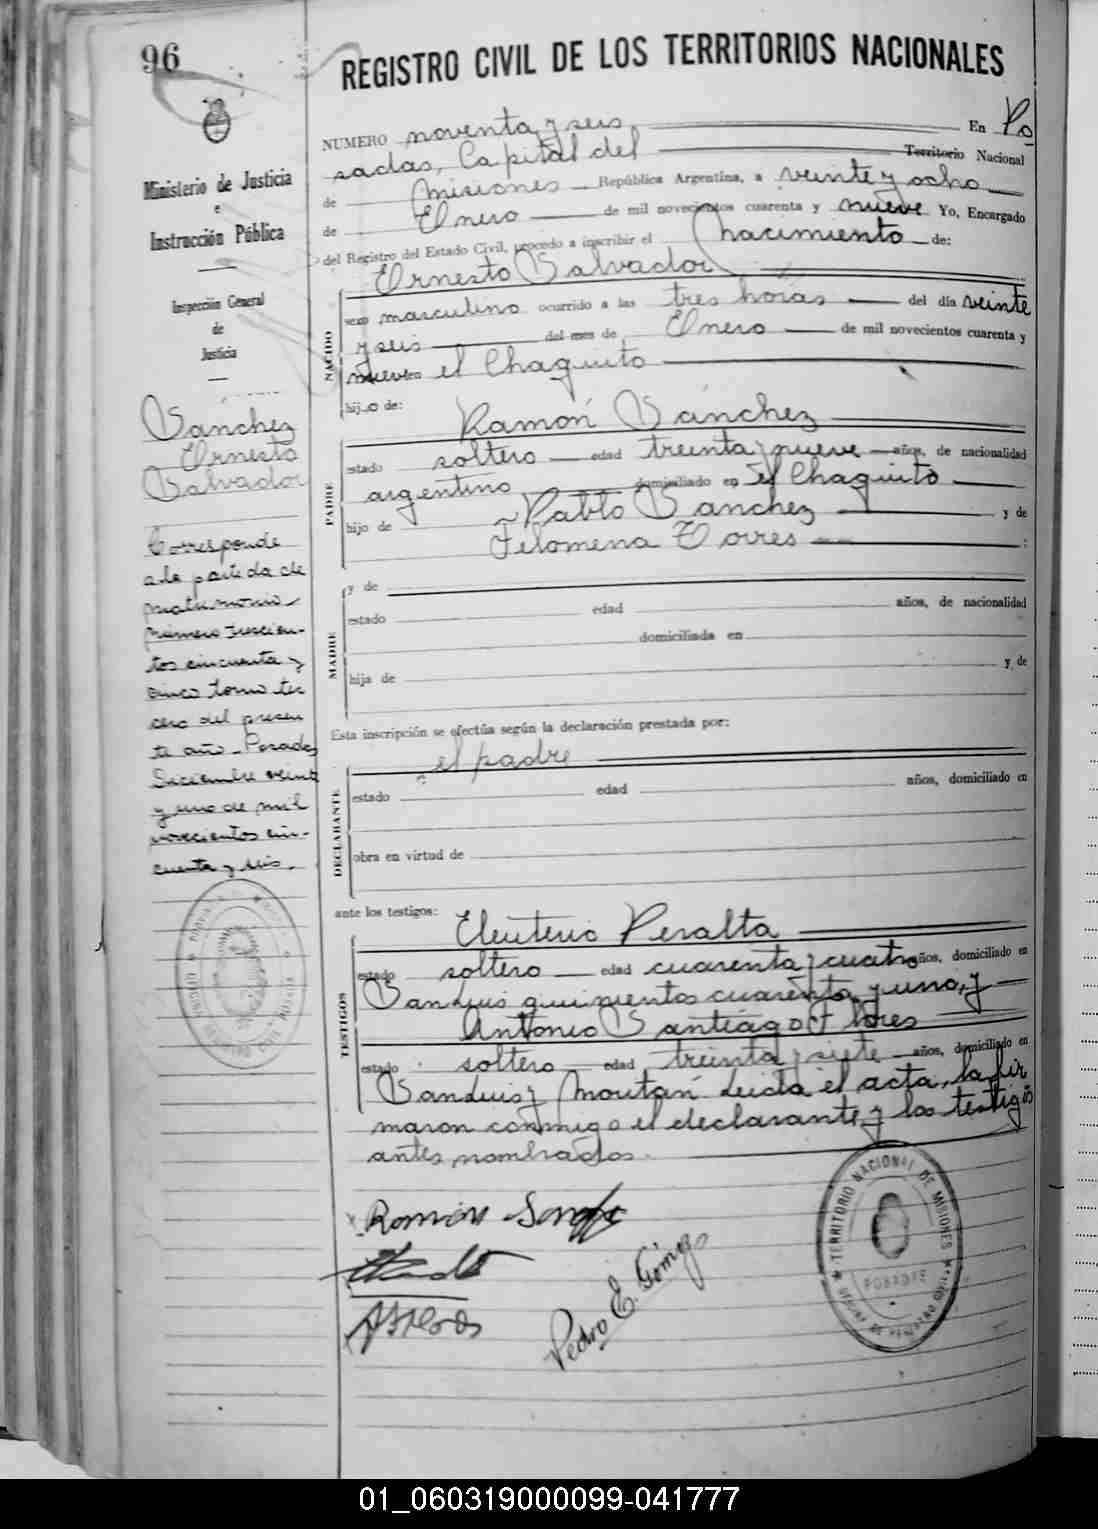 96
REGISTRO CIVIL DE LOS TERRITORIOS NACIONALES
Ministerio de Justicia
e
Instrucción Pública
Inspección General
de
Justicia
Sanchez
Ernesto
Salvador
Corresponde
a la partida de
matrimonio
número trescien-
tos cincuenta y
cinco tomo ter
cero del presen
te año - Posadas
Diciembre veinte
y uno de mil
novecientos cin-
cuenta y seis.
NUMERO noventa y seis En Po
sadas, Capital del Territorio Nacional
de Misiones República Argentina, a veinte y ocho
de Enero de mil novecientos cuarenta y nueve Yo, Encargado
del Registro del Estado Civil, procedo a inscribir el nacimiento de:
NACIDO
Ernesto Salvador
sexo masculino ocurrido a las tres horas del día veinte
y seis del mes de Enero de mil novecientos cuarenta y
nueve en el Chaquito
hijo de:
PADRE
Ramón Sánchez
estado soltero edad treinta y nueve años, de nacionalidad
argentino domiciliado en el Chaquito
hijo de Pablo Sanchez y de
Filomena Torres :
MADRE
y de
estado edad años, de nacionalidad
domiciliada en
hija de y de
Esta inscripción se efectúa según la declaración prestada por:
DECLARANTE
el padre
estado edad años, domiciliado en
obra en virtud de
ante los testigos:
TESTIGOS
Eleuterio Peralta
estado soltero edad cuarenta y cuatro años, domiciliado en
Sanluis quinientos cuarenta y uno, y
Antonio Santiago Flores
estado soltero edad treinta y siete años, domiciliado en
Sanluis y Moután Leida el acta, la fir
maron conmigo el declarante y los testigos
antes nombrados.
Ramón Sanchez
Pedro E. Gómez
TERRITORIO NACIONAL DE MISIONES
POSADAS
01_060319000099-041777